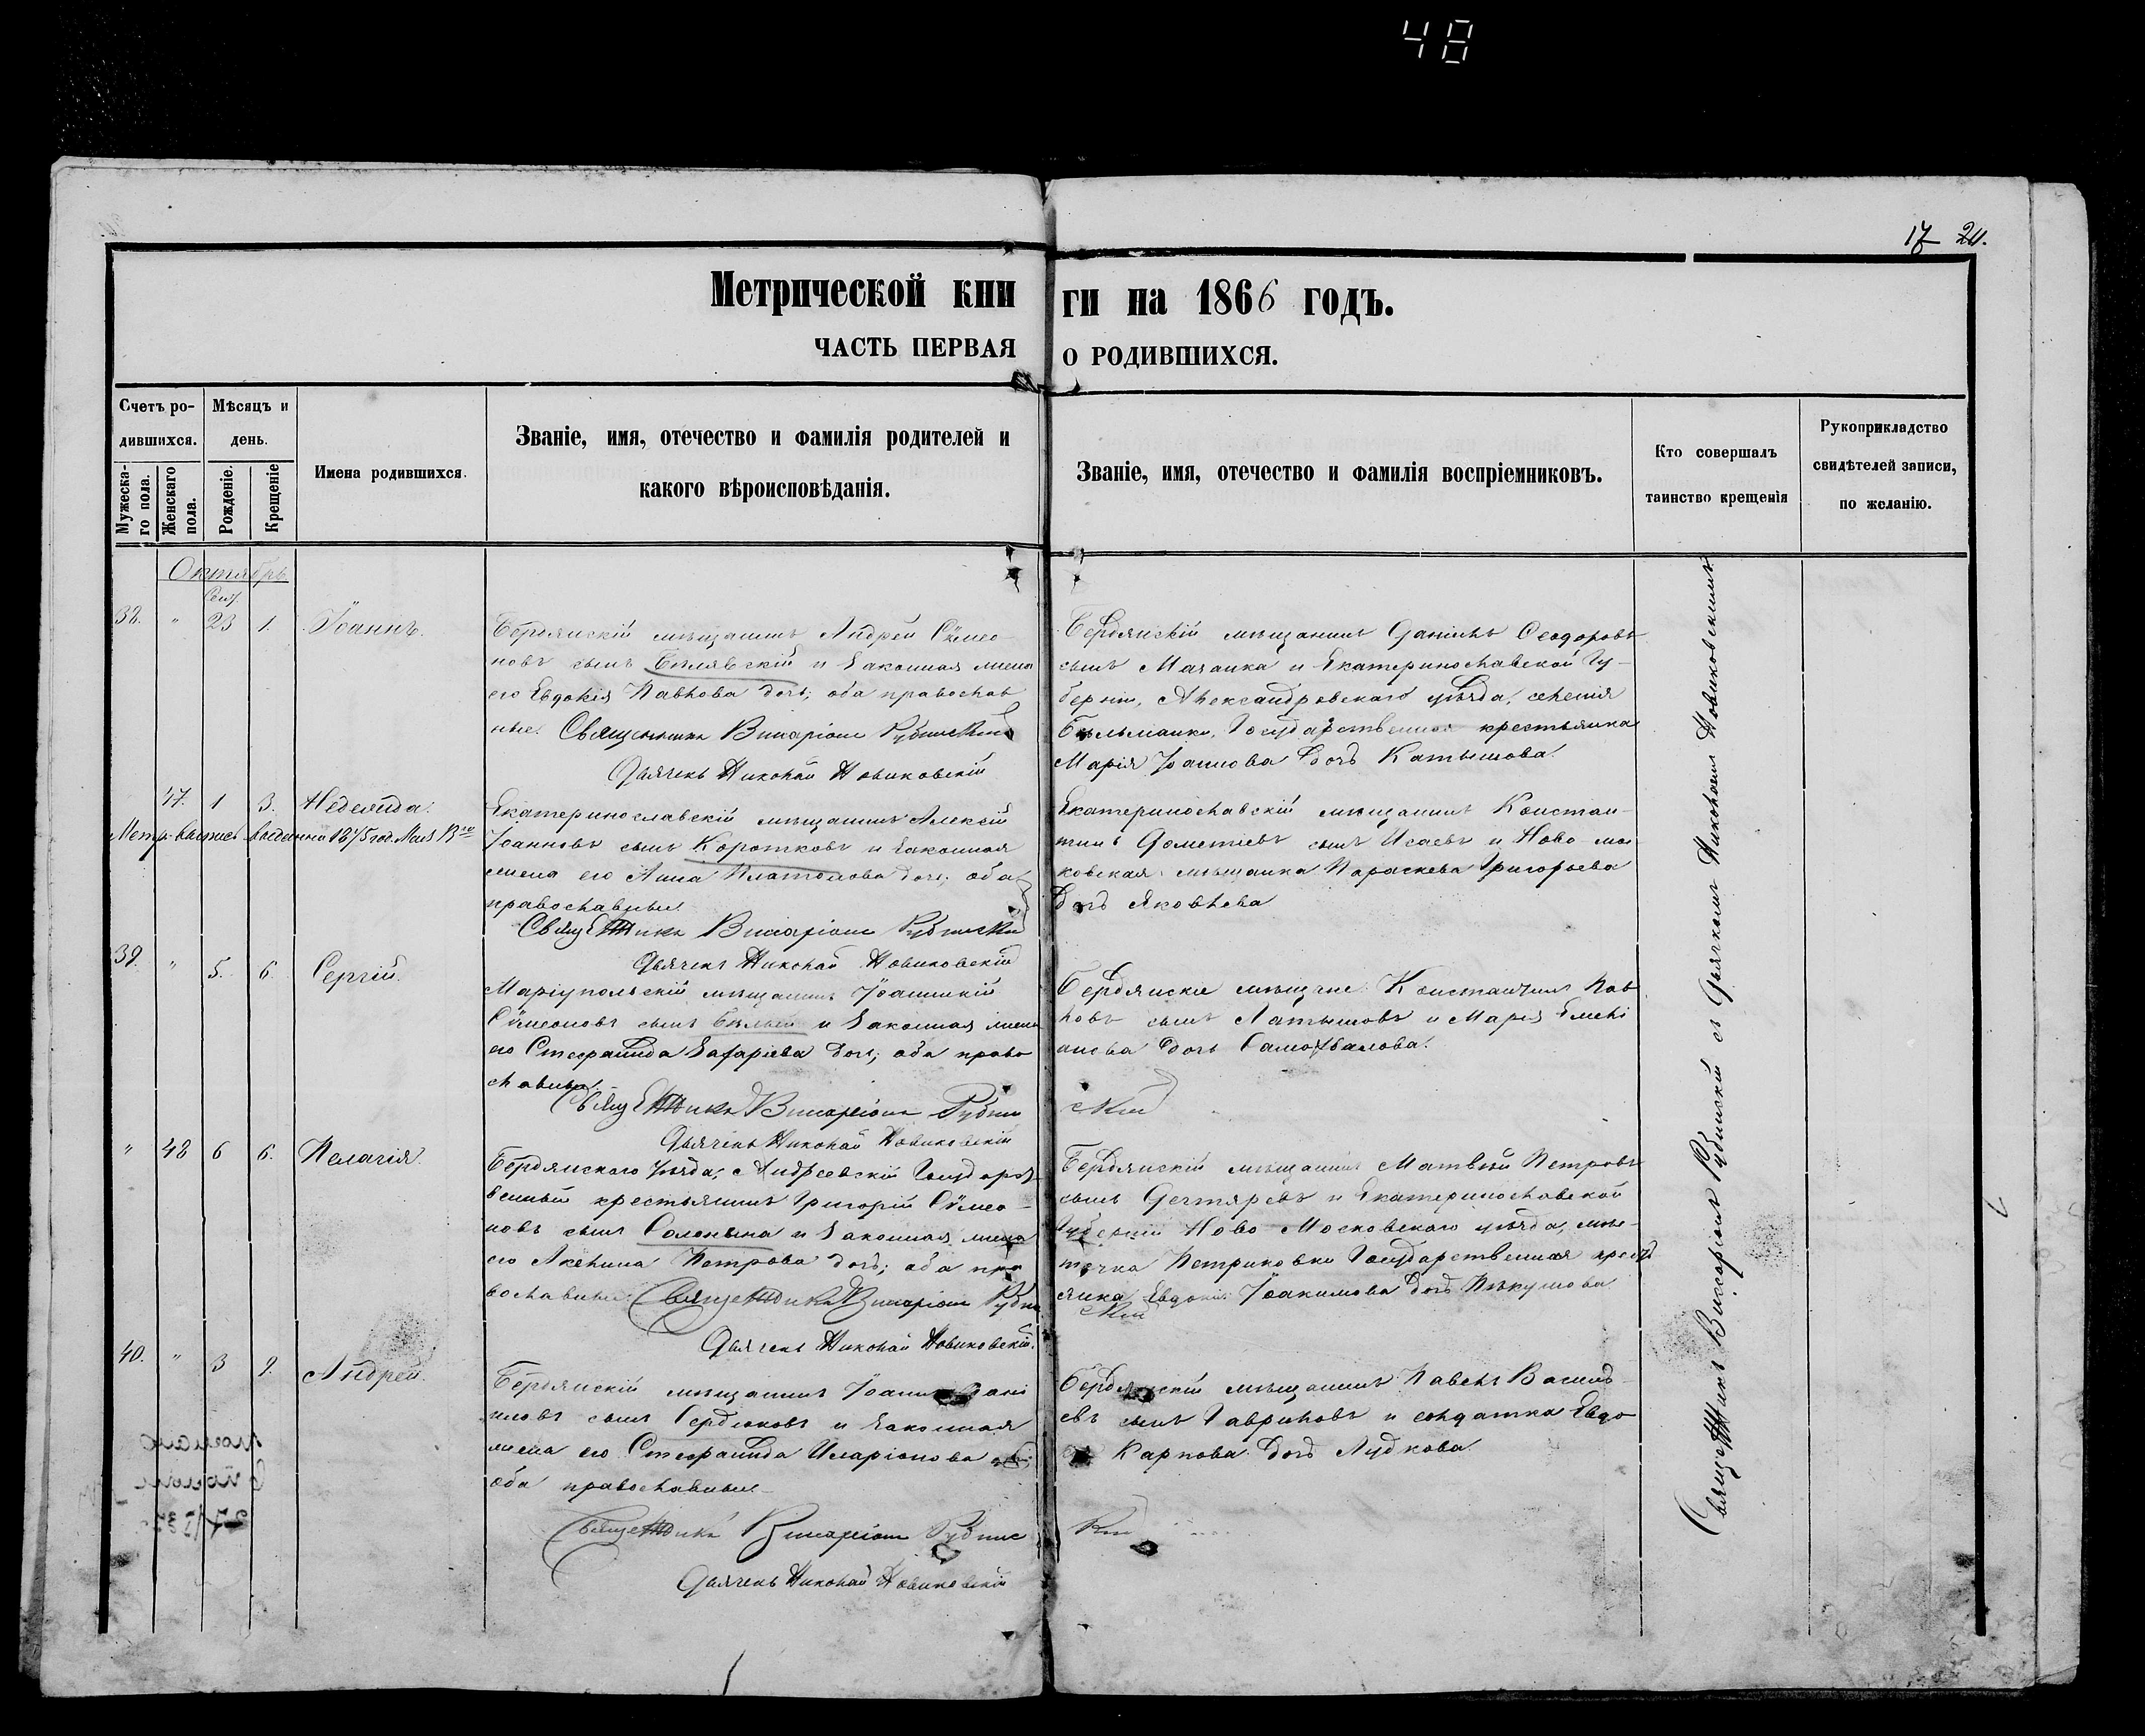 48
17 24.
Метрической кни ги на 1866 годъ.
ЧАСТЬ ПЕРВАЯ О РОДИВШИХСЯ.
Счетъ ро-
дившихся.
Мужеска-
го пола.
Женскаго
пола.
Мѣсяцъ и
день.
Рожденіе.
Крещеніе
Имена родившихся.
Званіе, имя, отечество и фамилія родителей и
какого вѣроисповѣданія.
Званіе, имя, отечество и фамилія воспріемниковъ.
Кто совершалъ
таинство крещенія
Рукоприкладство
свидѣтелей записи,
по желанію.
Октябрь
Сент.
38. " 23 1. Іоаннъ.
Бердянскій мѣщанинъ Андрей Сѷмео
новъ сынъ Бѣлявскій и законная жена
его Евдокія Павлова дочь; оба православ
ные. Священникъ Виссаріонъ Рубинскій
Дьячекъ Николай Новиковскій
Бердянскій мѣщанинъ Даніилъ Ѳеодоровъ
сынъ и Екатеринославской Гу-
берніи, Александровскаго уѣзда, селенія
Бѣльманки, Государственная крестьянка
Марія Іоаннова дочь Катышова.
47. 1 3.
Метр. выпись 1875 год. Мая
Екатеринославскій мѣщанинъ Алексій
Іоанновъ сынъ Коротковъ и законная
жена его Анна Платонова дочь; оба
православные
Священникъ Виссаріонъ Рубинскій
Дьячекъ Николай Новиковскій
Екатеринославскій мѣщанинъ Констан-
тинъ Дометіевъ сынъ Исаевъ и Ново-мос
ковская мѣщанка Параскева Григорьева
дочь Яковлева
39. " 5. 6. Сергій.
Маріупольскій мѣщанинъ Іоанникій
Сѷмеоновъ сынъ Бѣлый и законная жена
его Стефанида Захаріева дочь; оба право
славные.
Священникъ Виссаріонъ Рубин скій
Дьячекъ Николай Новиковскій
Бердянскіе мѣщане: Константинъ Пав
ловъ сынъ Латышовъ и Марія Емелі
анова дочь Самохвалова.
" 48 6 6. Пелагія.
Бердянскаго уѣзда, с. Андреевскій Государст
венный крестьянинъ Григорій Сѷмео-
новъ сынъ и законная жена
его Акелина Петрова дочь; оба пра
вославные Священникъ Виссаріонъ Рубин скій
Дьячекъ Николай Новиковскій.
Бердянскій мѣщанинъ Матвѣй Петровъ
сынъ Дегтяревъ и Екатеринославской
Губерніи Ново Московскаго уѣзда, мѣс-
течка Петриковки Государственная крест
янка Евдокія Іоакимова дочь
40. " 3 9. Андрей.
Бердянскій мѣщанинъ Іоаннъ Дані
иловъ сынъ Сердюковъ и законная
жена его Стефанида Иларіонова дочь;
оба православные
Священникъ Виссаріонъ Рубинс кій
Дьячекъ Николай Новиковскій
Бердянскій мѣщанинъ Павелъ Василь
евъ сынъ Гавриловъ и солдатка Евдо
Карпова дочь Лудкова
Священникъ Виссаріонъ Рубинскій съ Дьячкомъ Николаемъ Новиковскимъ